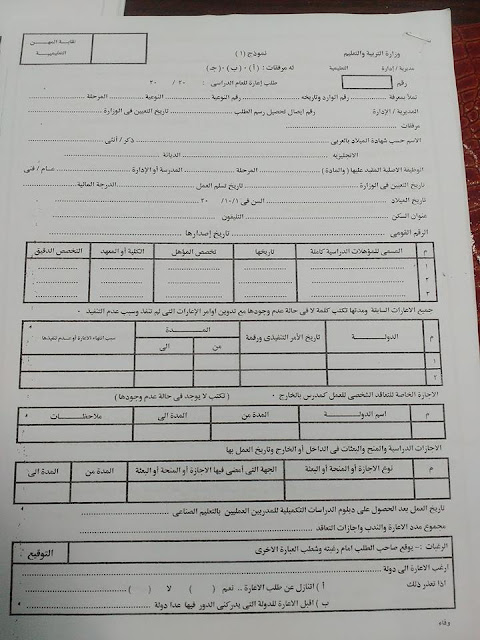 نقابة المهن
التعليمية
وزارة التربية والتعليم
نموذج (١)
مديرية / إدارة التعليمية
له مرفقات : (أ) - (ب) - (جـ)
رقم
طلب إعارة للعام الدراسى : ٢٠ / ٢٠
تملأ بمعرفة رقم الوارد وتاريخه رقم النوعية النوعية المرحلة
المديرية / الإدارة رقم ايصال تحصيل رسم الطلب تاريخ التعيين فى الوزارة
مرفقات
الاسم حسب شهادة الميلاد بالعربى ذكر / أنثى
الانجليزيه الديانة
الوظيفة الاصلية المقيد عليها ( والمادة ) المرحلة المدرسة أو الإدارة عـام / فنى
تاريخ التعيين فى الوزارة تاريخ تسلم العمل الدرجة المالية
تاريخ الميلاد السن فى ١٠/١/ ٢٠
عنوان السكن التليفون
الرقم القومى تاريخ إصدارها
م المسمى للمؤهلات الدراسية كاملة تاريخها تخصص المؤهل الكلية أو المعهد التخصص الدقيق
١
٢
٣
جميع الاعارات السابقة ومدتها تكتب كلمة لا فى حالة عدم وجودها مع تدوين اوامر الإعارات التى لم تنفذ وسبب عدم التنفيذ
م الدولـــة تاريخ الأمر التنفيذى ورقمة المـــدة سبب انتهاء الاعارة أو عدم تنفيذها
من الى
١
٢
الاجازة الخاصة للتعاقد الشخصى للعمل كمدرس بالخارج ( تكتب لا يوجد فى حالة عدم وجودها )
م اسم الدولــة المدة من المدة الى ملاحظــات
الاجازات الدراسية والمنح والبعثات فى الداخل أو الخارج وتاريخ العمل بها
م نوع الاجازة أو المنحة أو البعثة الجهة التى أمضى فيها الاجازة أو المنحة أو البعثة المدة من المدة الى
تاريخ العمل بعد الحصول على دبلوم الدراسات التكميلية للمدربين العمليين بالتعليم الصناعى
مجموع مدد الاعارة والندب واجازات التعاقد
الرغبات :- يوقع صاحب الطلب امام رغبته وشطب العبارة الاخرى
التوقيع
ارغب الاعارة الى دولة
اذا تعذر ذلك أ ) اتنازل عن طلب الاعارة .. نعم ( ) لا ( )
ب ) اقبل الاعارة للدولة التى يدركنى الدور فيها عدا دولة